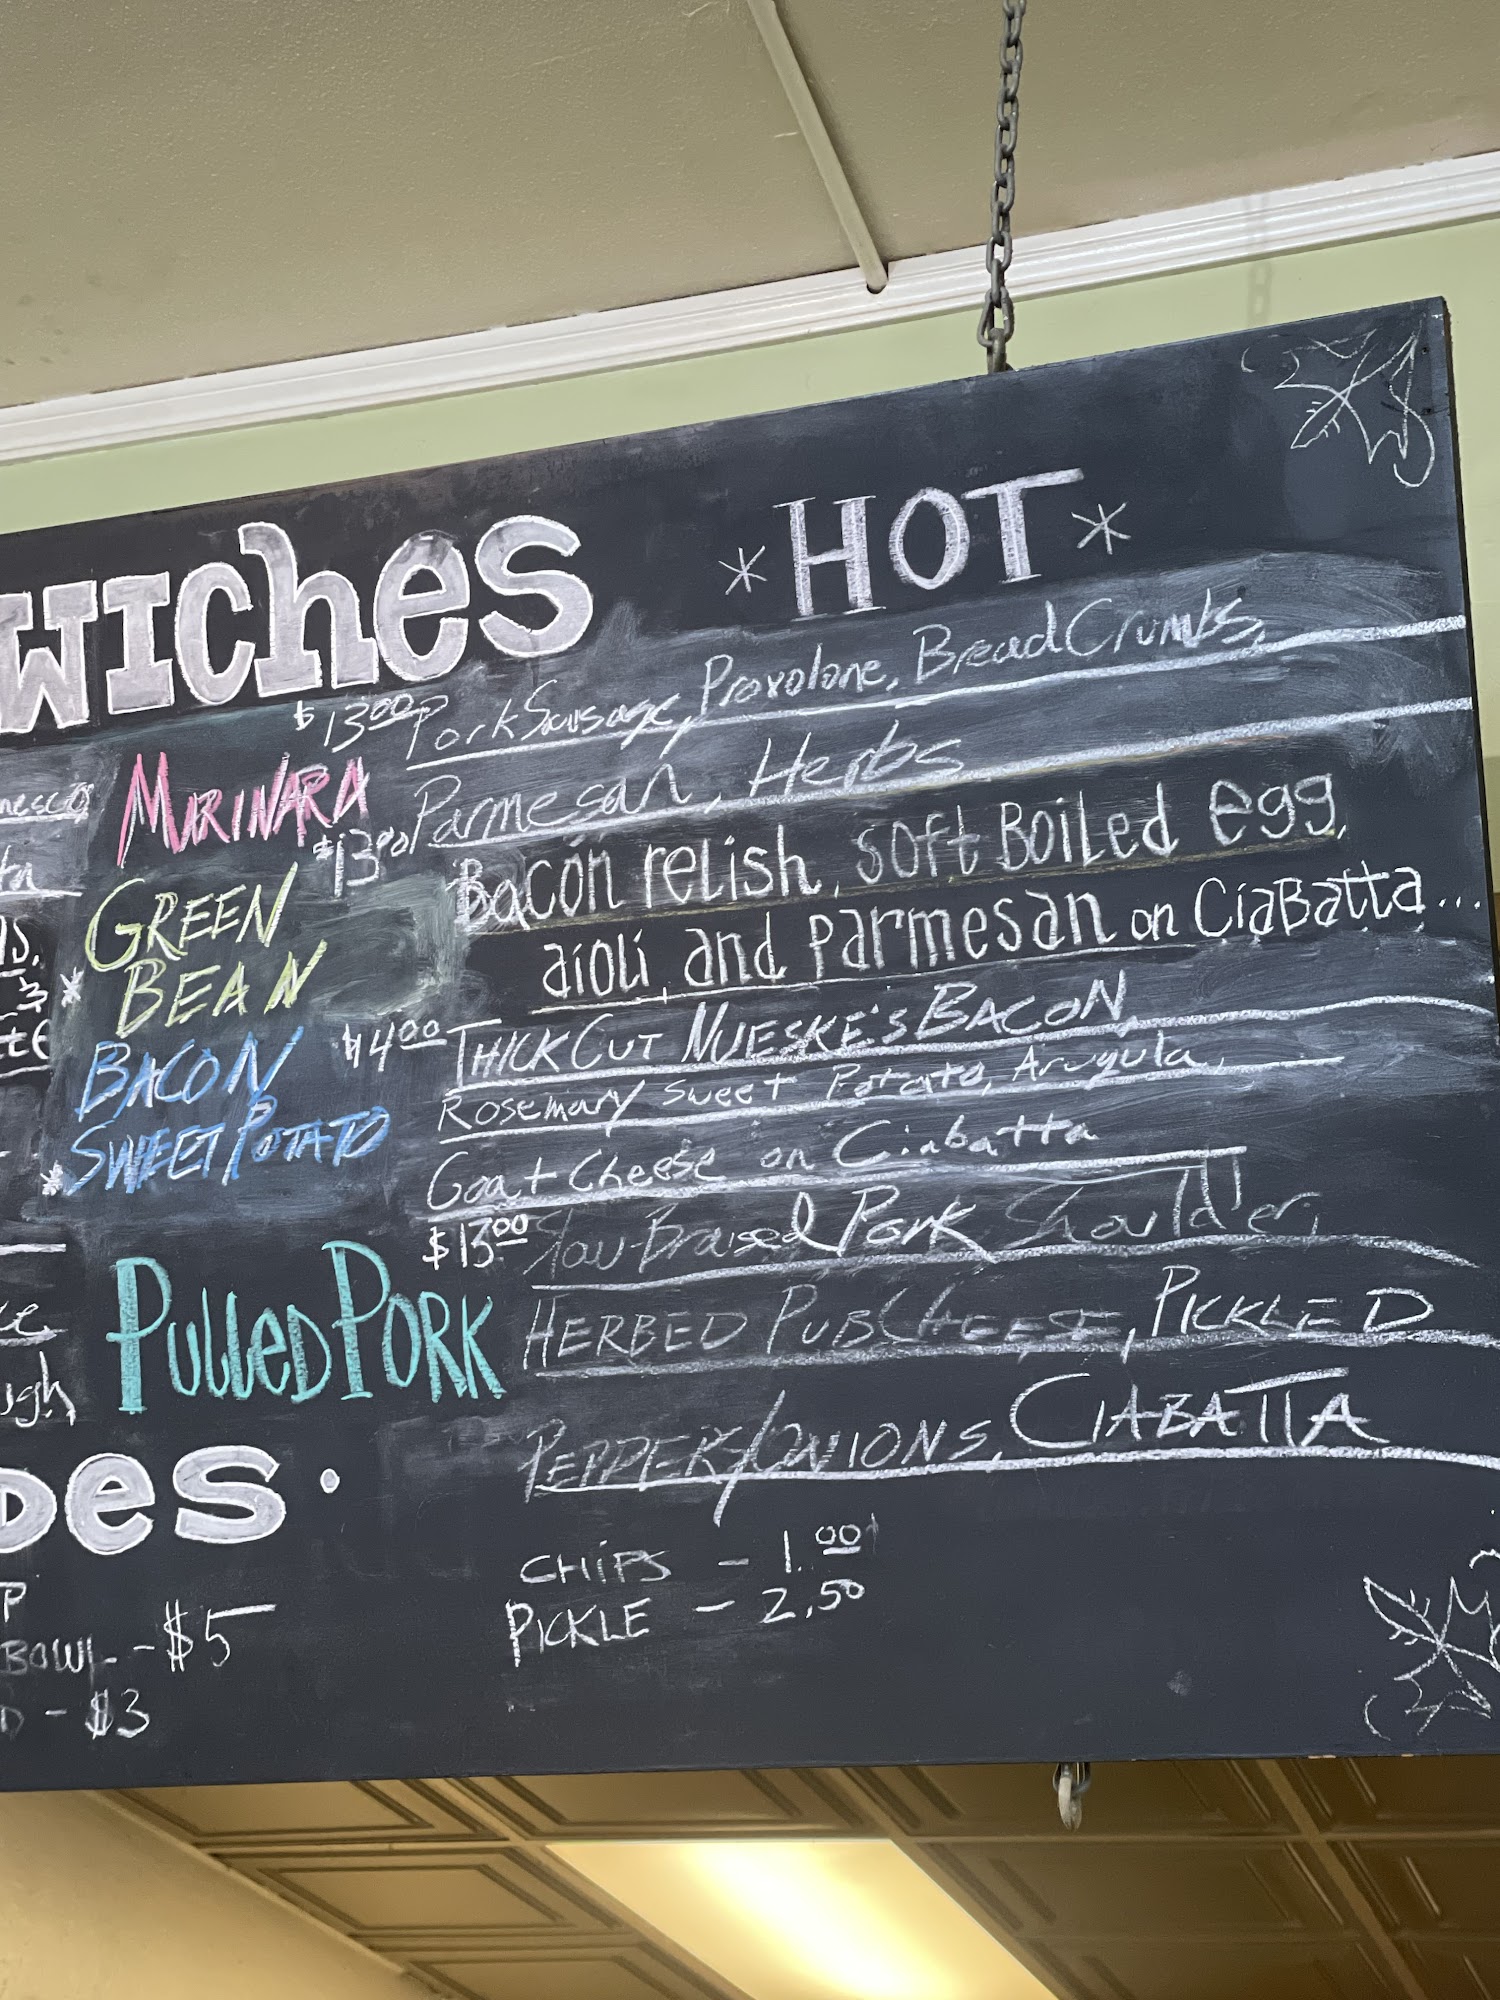 WICHES
*HOT*
$13.00 Pork Sausage, Provolone, Bread Crumbs,
MARINARA
Parmesan, Herbs
$13.00
GREEN
BEAN
Bacon relish, soft Boiled egg,
aioli, and parmesan on CiaBatta...
BACON
SWEET POTATO
$14.00 THICK CUT NUESKE'S BACON,
Rosemary Sweet Potato, Arugula,
Goat Cheese on Ciabatta
$13.00 Slow-Braised Pork Shoulder,
PULLED PORK
HERBED PUB CHEESE, PICKLED
PEPPERS/ONIONS, CIABATTA
DES.
BOWL - $5
D - $3
CHIPS - 1.00
PICKLE - 2.50